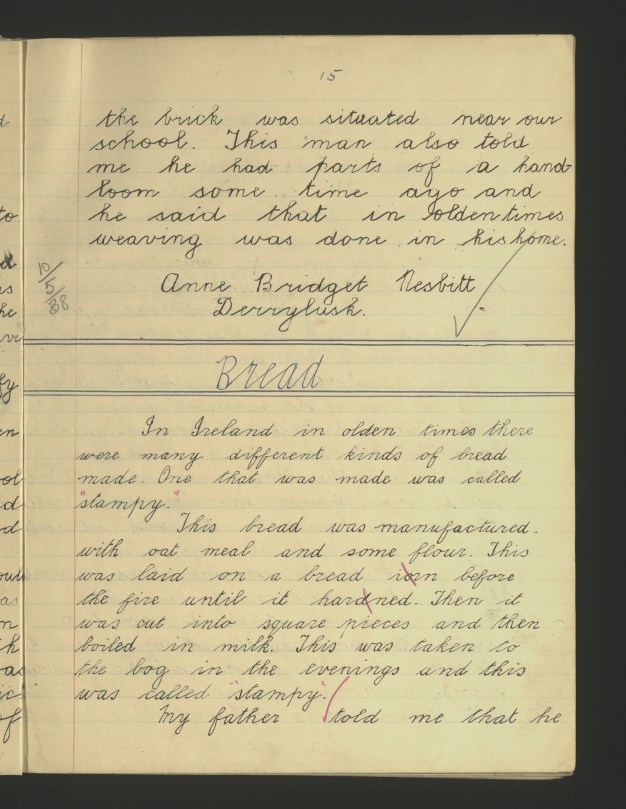 15
the brick was situated near our
school. This man also told
me he had parts of a hand
loom some time ago and
he said that in olden times
weaving was done in his home.
10/5/38
Anne Bridget Nesbitt
Derrylusk.
Bread
In Ireland in olden times there
were many different kinds of bread
made. One that was made was called
"stampy."
This bread was manufactured.
with oat meal and some flour. This
was laid on a bread iorn before
the fire until it hardned. Then it
was cut into square pieces and then
boiled in milk. This was taken to
the bog in the evenings and this
was called "stampy."
My father told me that he